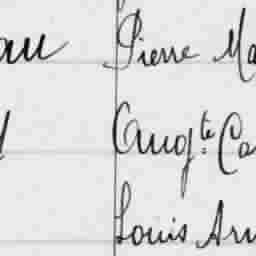 au Pierre Ma
Aug.te Ca
Louis Arn